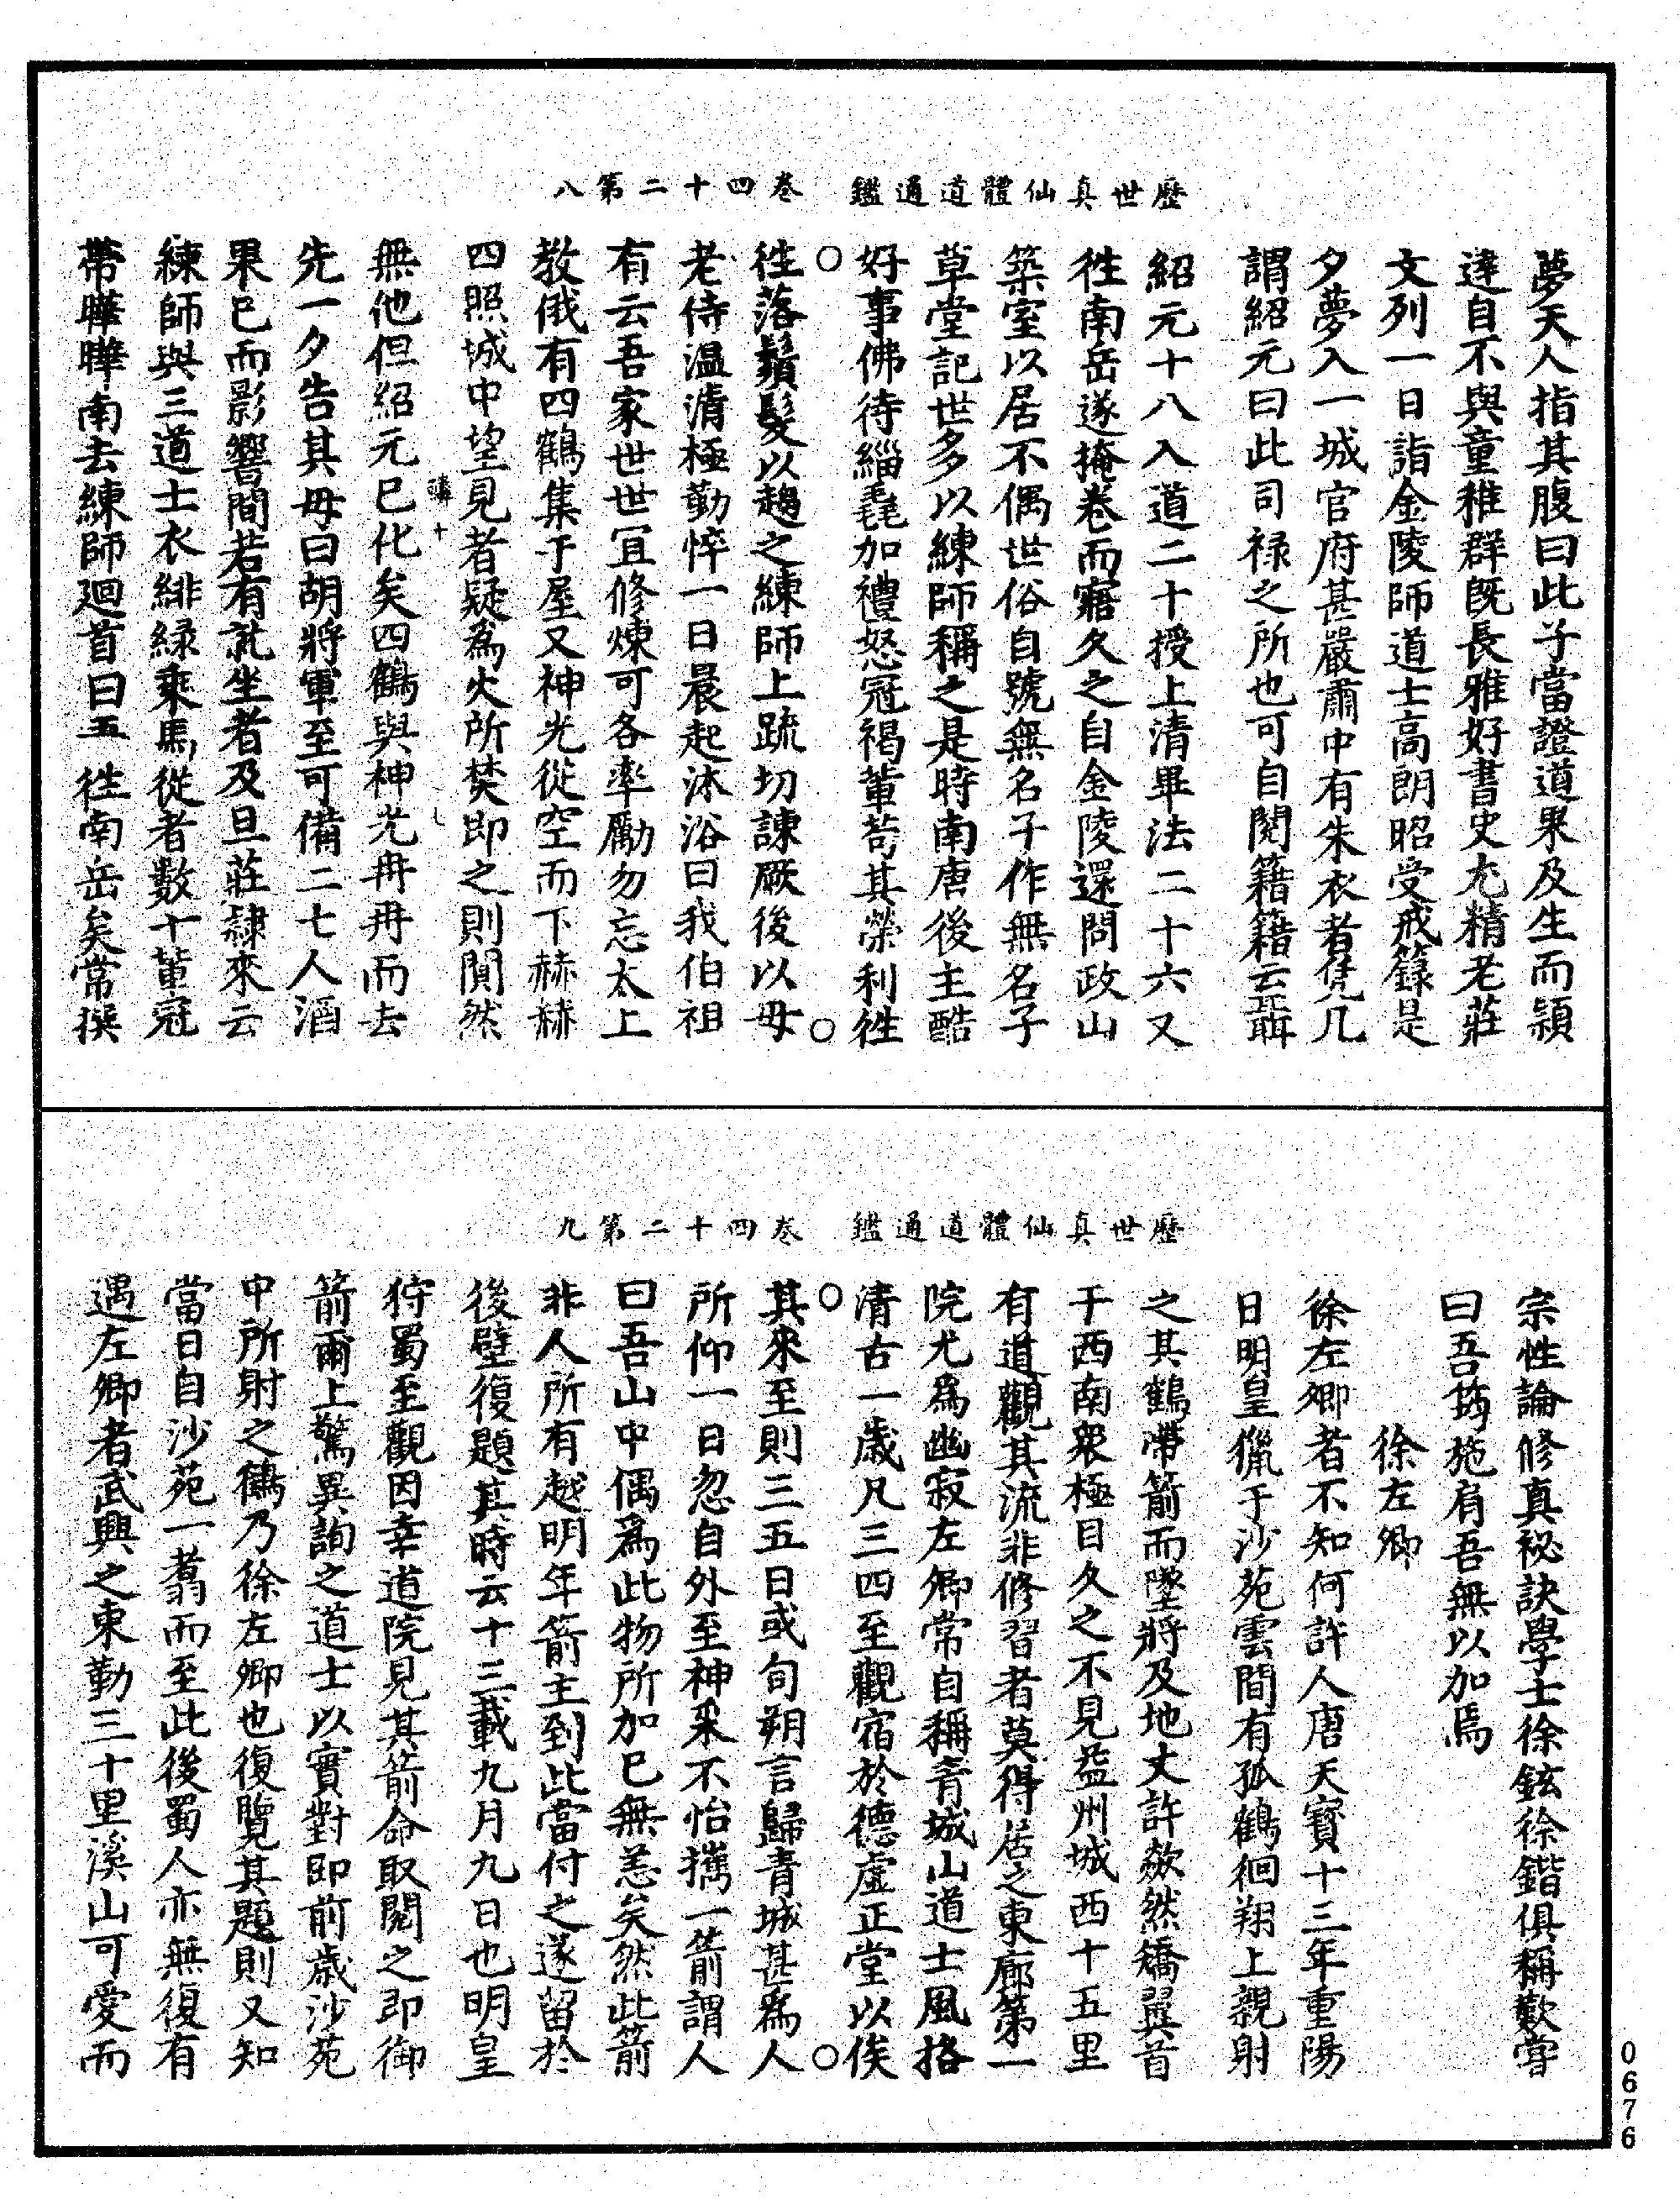 歷世真仙體道通鑑　卷四十二第八
夢天人指其腹曰此子當證道果及生而穎
達自不與童稚群既長雅好書史尤精老莊
文列一日詣金陵師道士高朗昭受戒籙是
夕夢入一城官府甚嚴肅中有朱衣者凭几
謂紹元曰此司祿之所也可自閱籍籍云聶
紹元十八入道二十授上清畢法二十六又
徃南岳遂掩卷而寤久之自金陵還問政山
築室以居不偶世俗自號無名子作無名子
草堂記世多以練師稱之是時南唐後主酷
好事佛待緇毳加禮怒冠褐軰苟其榮利徃
徃落鬚髮以趨之練師上疏切諫厥後以母
老侍温凊極勤悴一日晨起沐浴曰我伯祖
有云吾家世世冝修煉可各率勵勿忘太上
教俄有四鶴集于屋又神光從空而下赫赫
四照城中望見者疑為火所焚即之則閴然
無他但紹元已化矣四鶴與神光冉冉而去
先一夕告其母曰胡將軍至可備二七人酒
果已而影響間若有就坐者及旦莊隸來云
練師與三道士衣緋緑乘馬從者數十軰冠
帶曄曄南去練師廻首曰吾徃南岳矣常撰
歷世真仙體道通鑑　卷四十二第九
宗性論修真祕訣學士徐鉉徐鍇俱稱歎嘗
曰吾筠施肩吾無以加焉
徐左卿
徐左卿者不知何許人唐天寶十三年重陽
日明皇獵于沙苑雲間有孤鶴徊翔上親射
之其鶴帶箭而墜將及地丈許欻然矯翼首
于西南衆極目久之不見益州城西十五里
有道觀其流非修習者莫得居之東廊第一
院尤為幽寂左卿常自稱青城山道士風格
清古一歲凡三四至觀宿於德虛正堂以俟
其來至則三五日或旬朔言歸青城甚為人
所仰一日忽自外至神采不怡携一箭謂人
曰吾山中偶為此物所加已無恙矣然此箭
非人所有越明年箭主到此當付之遂留於
後壁復題其時云十三載九月九日也明皇
狩蜀至觀因幸道院見其箭命取閱之即御
箭爾上驚異詢之道士以實對即前歲沙苑
中所射之鶴乃徐左卿也復覽其題則又知
當日自沙苑一翥而至此後蜀人亦無復有
遇左卿者武興之東勤三十里溪山可愛而
0676